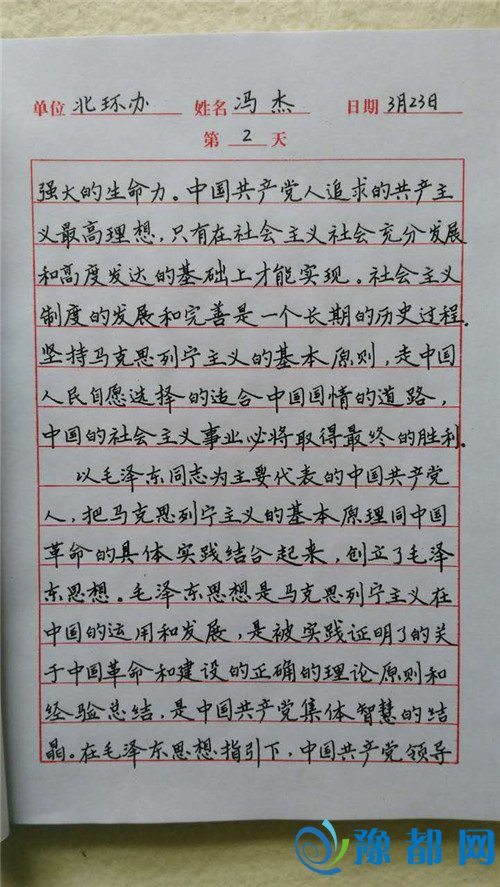 单位 北环办 姓名 冯杰 日期 3月23日
第 2 天
强大的生命力。中国共产党人追求的共产主
义最高理想，只有在社会主义社会充分发展
和高度发达的基础上才能实现。社会主义
制度的发展和完善是一个长期的历史过程。
坚持马克思列宁主义的基本原则，走中国
人民自愿选择的适合中国国情的道路，
中国的社会主义事业必将取得最终的胜利。
以毛泽东同志为主要代表的中国共产党
人，把马克思列宁主义的基本原理同中国
革命的具体实践结合起来，创立了毛泽
东思想。毛泽东思想是马克思列宁主义在
中国的运用和发展，是被实践证明了的关
于中国革命和建设的正确的理论原则和
经验总结，是中国共产党集体智慧的结
晶。在毛泽东思想指引下，中国共产党领导
豫都网